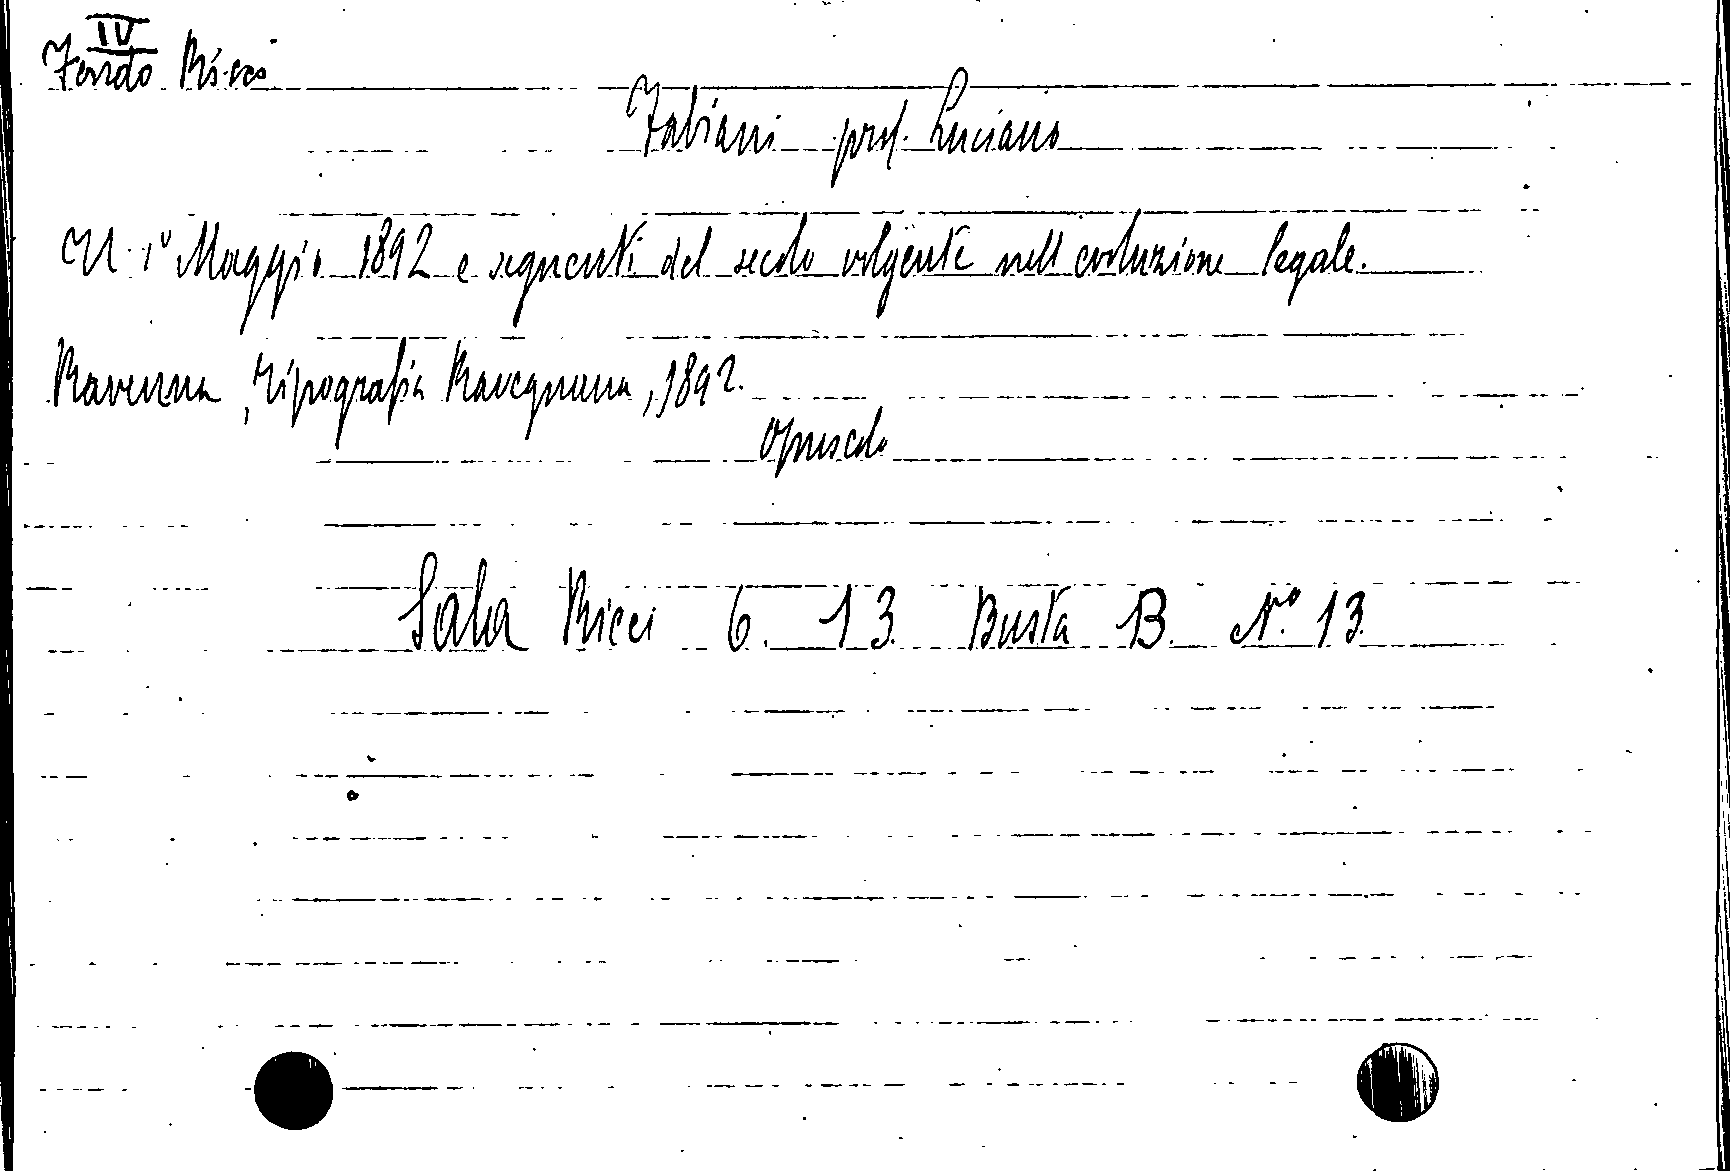 IV
Fondo Ricci
Fabiani prof. Luciano
Il 1° Maggio 1892 e seguenti del secolo volgente nell evoluzione legale.
Ravenna, Tipografia Ravegnana, 1892.
Opuscolo
Sala Ricci 6. 13. Busta B. N.° 13.